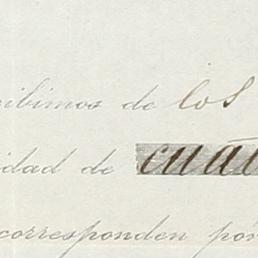 ibimos de los
idad de cuat
corresponden por